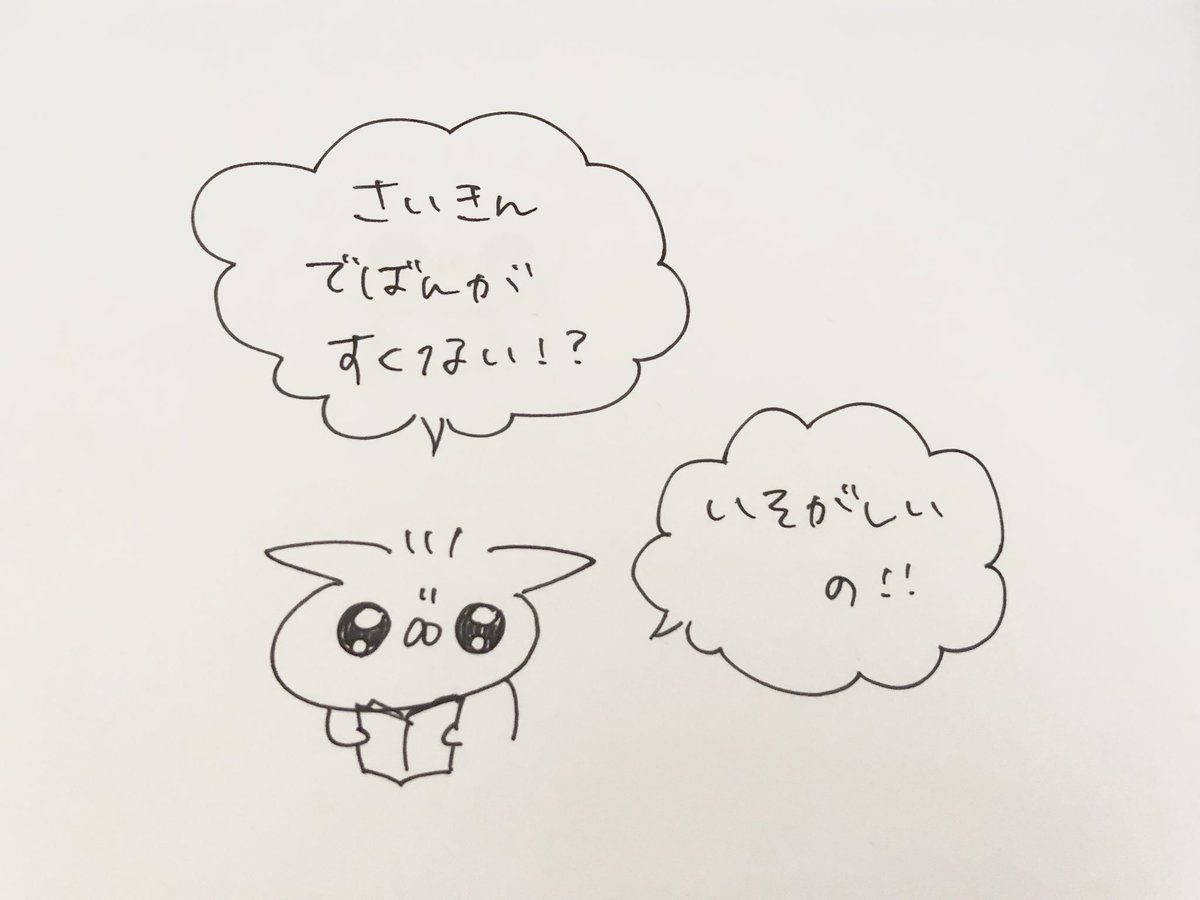 さいきん
でばんが
すくない!?
いそがしい
の!!